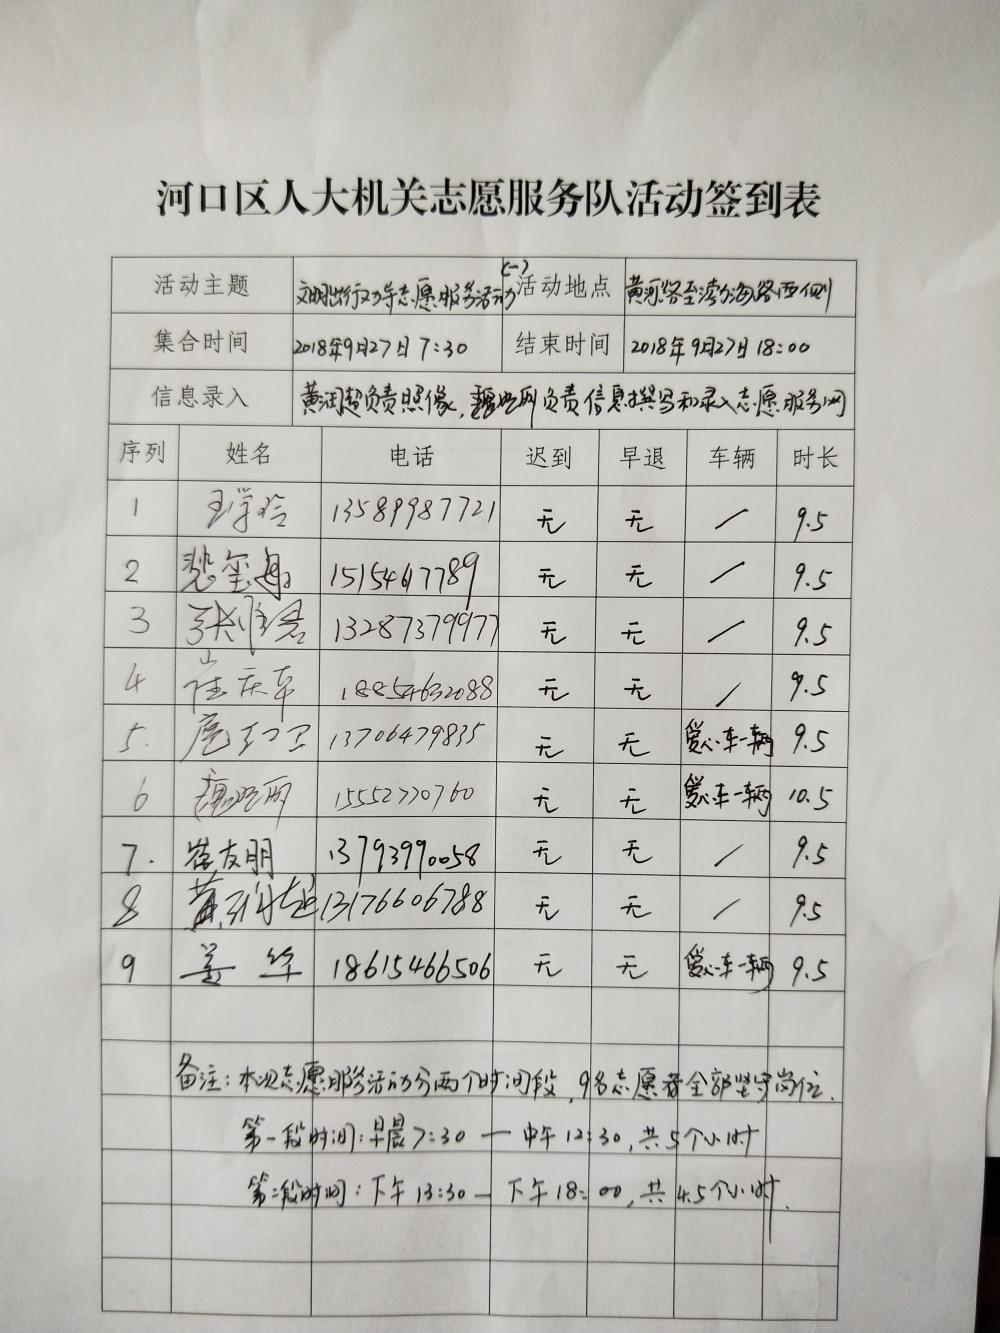 河口区人大机关志愿服务队活动签到表
活动主题 文明出行劝导志愿服务活动(一) 活动地点 黄河路至渤海路西侧
集合时间 2018年9月27日 7:30 结束时间 2018年9月27日 18:00
信息录入 黄润超负责照像,负责信息撰写和录入志愿服务网
序列 姓名 电话 迟到 早退 车辆 时长
1 13589987721 无 无 / 9.5
2 15154617789 无 无 / 9.5
3 13287379977 无 无 / 9.5
4 崔庆车 18854632088 无 无 / 9.5
5. 13706479835 无 无 爱心车一辆 9.5
6 15552770760 无 无 爱心车一辆 10.5
7. 崔友朋 13793990058 无 无 / 9.5
8 黄润超 13176606788 无 无 / 9.5
9 姜华 18615466506 无 无 爱心车一辆 9.5
备注:本次志愿服务活动分两个时间段,9名志愿者全部坚守岗位.
第一段时间:早晨7:30一中午12:30,共5个小时
第二段时间:下午13:30一下午18:00,共4.5个小时.